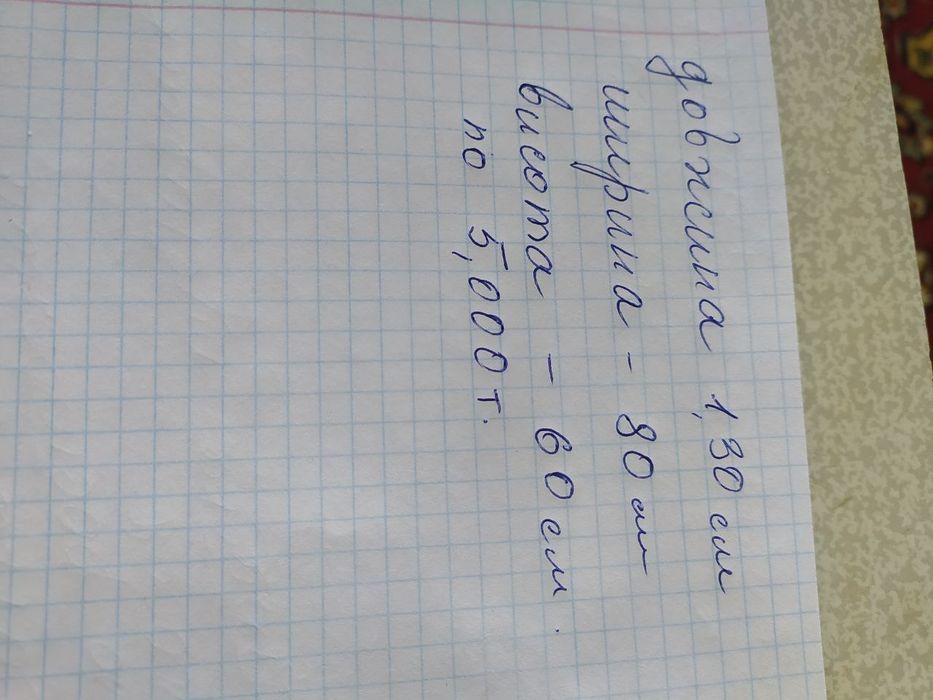 довжина 1,30 см
ширина - 80 см
висота - 60 см.
по 5,000 т.